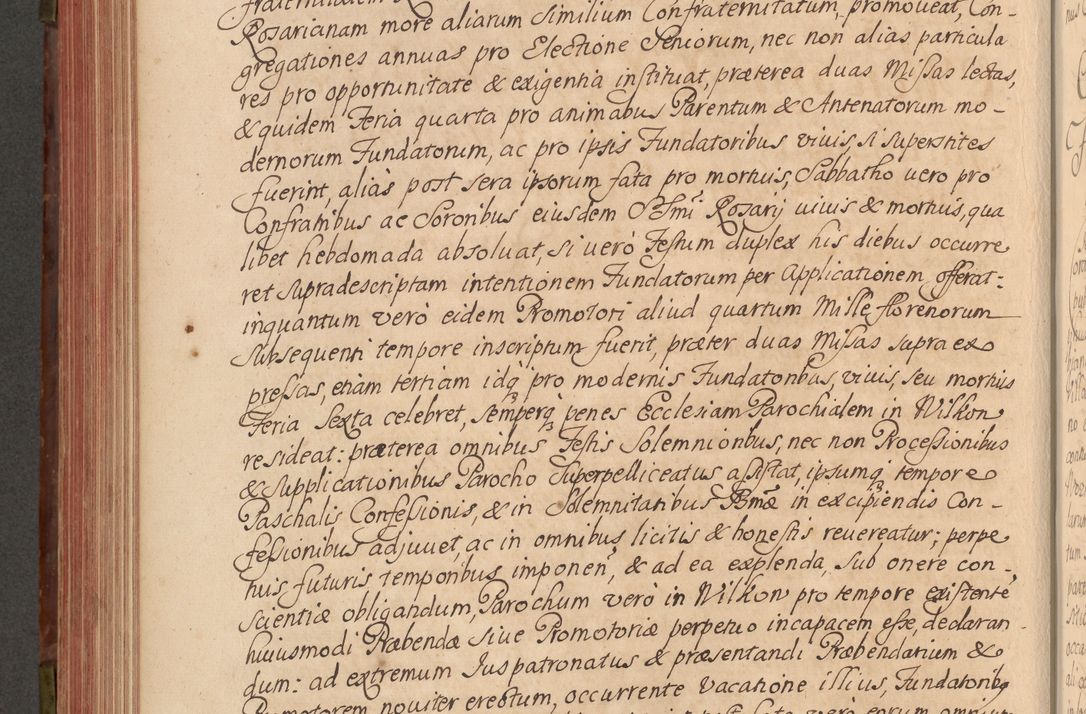 Rosarianam more aliarum similium Confraternitatum, promoveat, Con-
gregationes annuas pro Electione Seniorum, nec non alias particula
res pro opportunitate & exigentia instituat, præterea duas Missas lectas,
& quidem Feria quarta pro animabus Parentum & Antenatorum mo-
dernorum Fundatorum, ac pro ipsis Fundatoribus vivis, si superstites
fuerint, aliàs post sera ipsorum fata pro mortuis, Sabbatho vero pro
Confratribus ac Sororibus eiusdem SSmi Rosarij vivis & mortuis, qua
libet hebdomada absolvat, si verò Festum duplex his diebus occurre
ret supradescriptam intentionem Fundatorum per Applicationem offerat:
inquantum verò eidem Promotori aliud quartum Mille florenorum
subsequenti tempore inscriptum fuerit, præter duas Missas supra ex
pressas, etiam tertiam idq3 pro modernis Fundatoribus, vivis, seu mortuis
Feria Sexta celebret, semperq3 penes Ecclesiam Parochialem in Wilkow
resideat: præterea omnibus Festis Solemnioribus, nec non Processionibus
& supplicationibus Parocho Superpelliceatus assistat, ipsumq3 tempore
Paschalis Confessionis, & in Solemnitatibus Bmæ in excipiendis Con-
fessionibus adjuvet, ac in omnibus licitis & honestis revereatur; perpe
tuis futuris temporibus imponen, & ad ea explenda, sub onere con-
scientiæ obligandum, Parochum verò in Wilkow pro tempore existente
huiusmodi Præbendæ sive Promotoriæ perpetuo incapacem esse, declaran-
dum: ad extremum Juspatronatus & præsentandi Præbendarium &
Promotorem noviter erectum, occurrente vacatione illius, Fundatorib9